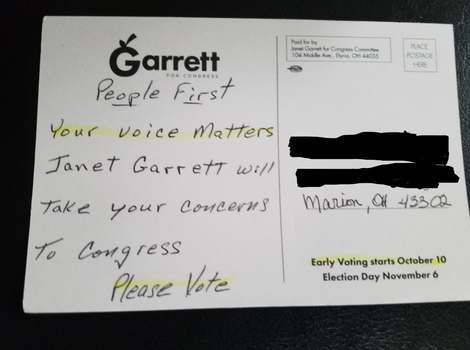 Garrett
FOR CONGRESS
People First
Your voice Matters
Janet Garrett will
Take your concerns
To Congress
Please Vote
Paid for by
Janet Garrett for Congress Committee
104 Middle Ave., Elyria, OH 44035
PLACE
POSTAGE
HERE
Marion, OH 43302
Early Voting starts October 10
Election Day November 6